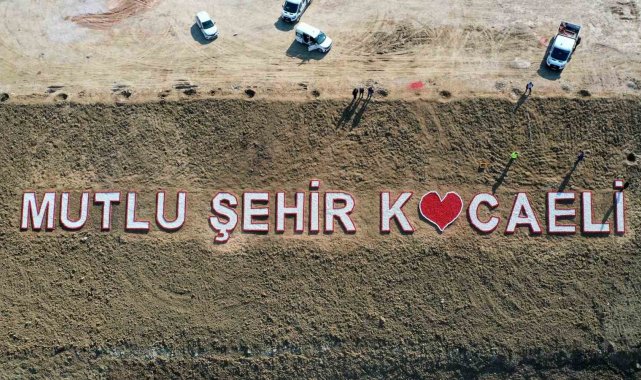 MUTLU ŞEHİR K❤CAELİ